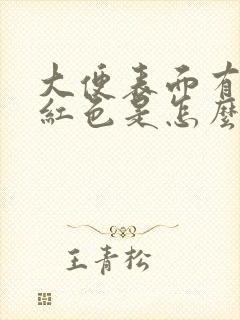 大便表面有
紅色是怎麼
王青松